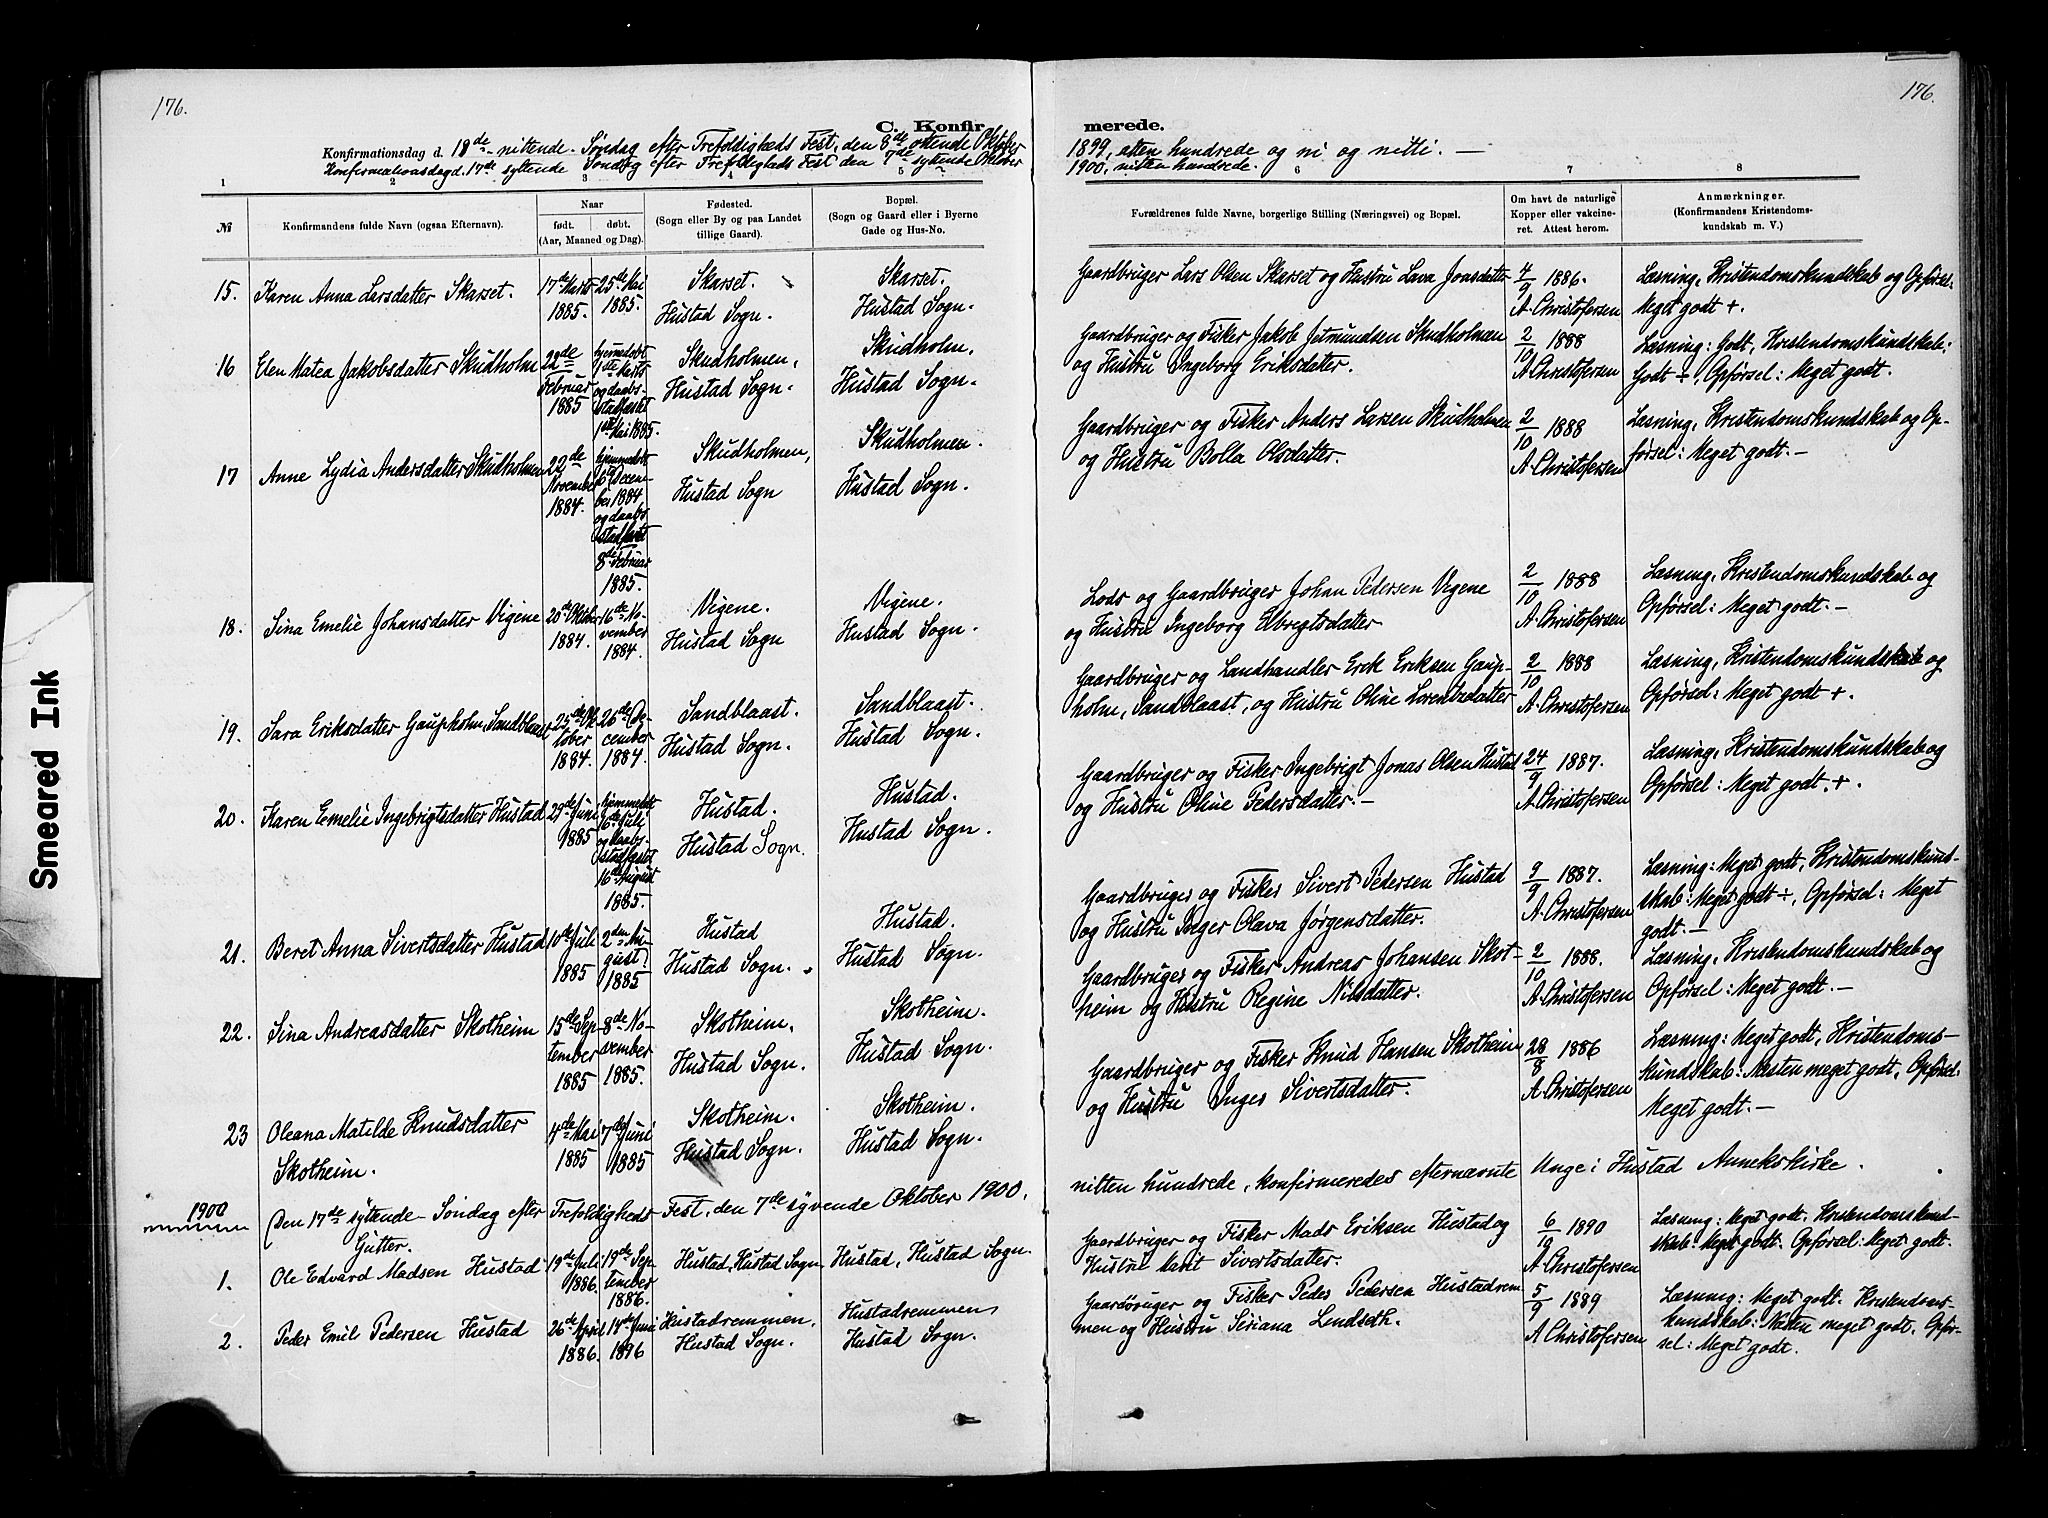 176.
176.
C. Konfir
merede.
Konfirmationsdag d. 18de nittende Søndag efter Trefoldigheds Fest, den 8de ottende Oktober
1899, atten hundrede og ni og nitti. —
Konfirmationsdag d. 17de syttende Søndag efter Trefoldigheds Fest den 7de syttende Oktober
1900, nitten hundrede.
1 2 3 4 5 6 7 8
№
Konfirmandens fulde Navn (ogsaa Efternavn).
Naar
født. døbt.
(Aar, Maaned og Dag).
Fødested.
(Sogn eller By og paa Landet
tillige Gaard).
Bopæl.
(Sogn og Gaard eller i Byerne
Gade og Hus-No.
Forældrenes fulde Navne, borgerlige Stilling (Næringsvei) og Bopæl.
Om havt de naturlige
Kopper eller vakcine-
ret. Attest herom.
Anmærkninger.
(Konfirmandens Kristendoms-
kundskab m. V.)
15. Karen Anna Larsdatter Skarset.
17de Marts
1885.
25de Mai
1885.
Skarset.
Hustad Sogn.
Skarset.
Hustad Sogn.
Gaardbruger Lars Olsen Skarset og Hustru Lava Jonsdatter
4/9 1886.
A. Christofersen
Læsning, Kristendomskundskab og Opførsel:
Meget godt +.
16 Elen Matea Jakobsdatter Skudholm
22de
Februar
1885
hjemmedøbt
1ste Marts
og daabs-
stadfæstet
1ste Mai 1885.
Skudholmen,
Hustad Sogn.
Skudholm.
Hustad Sogn.
Gaardbruger og Fisker Jakob Jetmundsen Skudholmen
og Hustru Ingeborg Eriksdatter.
2/10 1888
A. Christofersen
Læsning: Godt, Kristendomskundskab:
Godt ÷, Opførsel: Meget godt.
17 Anne Lydia Andersdatter Skudholmen
22de
November
1884.
hjemmedøbt
6te Decem-
ber 1884.
og daabs-
stadfæstet
8de Februar
1885.
Skudholmen,
Hustad Sogn
Skudholmen.
Hustad Sogn.
Gaardbruger og Fisker Anders Larsen Skudholmen
og Hustru Bolla Olsdatter.
2/10 1888
A. Christofersen
Læsning, Kristendomskundskab og Op-
førsel: Meget godt. —
18. Sina Emelie Johansdatter Vigene
20de Oktober
1884.
16de No-
vember
1884.
Vigene.
Hustad Sogn
Vigene.
Hustad Sogn.
Lods og Gaardbruger Johan Pedersen Vegene
og Hustru Ingeborg Elbrigtsdatter
2/10 1888
A. Christofersen
Læsning, Kristendomskundskab og
Opførsel: Meget godt. —
19. Sara Eriksdatter Gaupholm, Sandblaast
25de Ok-
tober
1884.
26de De-
cember
1884.
Sandblaast.
Hustad Sogn.
Sandblaast.
Hustad Sogn.
Gaardbruger og Landhandler Erik Eriksen Gaup-
holm, Sandblaast, og Hustru Oline Lorentzdatter
2/10 1888
A. Christofersen
Læsning, Kristendomskundskab og
Opførsel: Meget godt +.
20. Karen Emelie Ingebrigtsdatter Hustad
29de Juni
1885
hjemmedøbt
6te Juli
og daabs-
stadfæstet
16de August
1885.
Hustad.
Hustad Sogn.
Hustad.
Hustad Sogn.
Gaardbruger og Fisker Ingebrigt Jonas Olsen Hustad
og Hustru Oline Pedersdatter. —
24/9 1887.
A. Christofersen
Læsning, Kristendomskundskab og
Opførsel: Meget godt. +.
21. Beret Anna Sivertsdatter Hustad
10de Juli
1885
2den Au-
gust
1885
Hustad
Hustad Sogn.
Hustad.
Hustad Sogn.
Gaardbruger og Fisker Sivert Pedersen Hustad
og Hustru Inger Olava Jørgensdatter.
9/9 1887.
A. Christofersen
Læsning: Meget godt, Kristendomskund-
skab: Meget godt ÷, Opførsel: Meget
godt. —
22. Sina Andreasdatter Skotheim
15de Sep-
tember
1885
8de No-
vember
1885.
Skotheim.
Hustad Sogn.
Skotheim.
Hustad Sogn.
Gaardbruger og Fisker Andreas Johansen Skot-
heim og Hustru Regine Nilsdatter.
2/10 1888.
A. Christofersen
Læsning, Kristendomskundskab og
Opførsel: Meget godt. —
23 Oleana Matilde Knudsdatter
Skotheim.
4de Mai
1885
7de Juni
1885
Skotheim.
Hustad Sogn.
Skotheim.
Hustad Sogn.
Gaardbruger og Fisker Knud Hansen Skotheim
og Hustru Inger Sivertsdatter.
28/8 1886
A. Christofersen
Læsning: Meget godt, Kristendoms-
kundskab: Næsten meget godt, Opførsel:
Meget godt. —
1900
Den 17de syttende Søndag efter Trefoldigheds Fest, den 7de syvende Oktober 1900.
nitten hundrede, konfirmeredes efternævnte Unge i Hustad Annekskirke.
Gutter.
1. Ole Edvard Madsen Hustad
19de Juli
1886.
19de Sep-
tember
1886.
Hustad, Hustad Sogn.
Hustad, Hustad Sogn.
Gaardbruger og Fisker Mads Eriksen Hustad og
Hustru Marit Sivertsdatter.
6/10 1890
A. Christofersen
Læsning: Meget godt. Kristendomskund-
skab: Meget godt. Opførsel: Meget godt.
2. Peder Emil Pedersen Hustad
26de April
1886.
14de Juni
1896
Hustadremmen.
Hustad Sogn.
Hustadremmen
Hustad Sogn.
Gaardbruger og Fisker Peder Pedersen Hustadrem-
men og Hustru Siriana Lendseth.
5/9 1889
A. Christofersen
Læsning: Meget godt. Kristendoms-
kundskab: Næsten meget godt. Opfør-
sel: Meget godt.
Smeared Ink